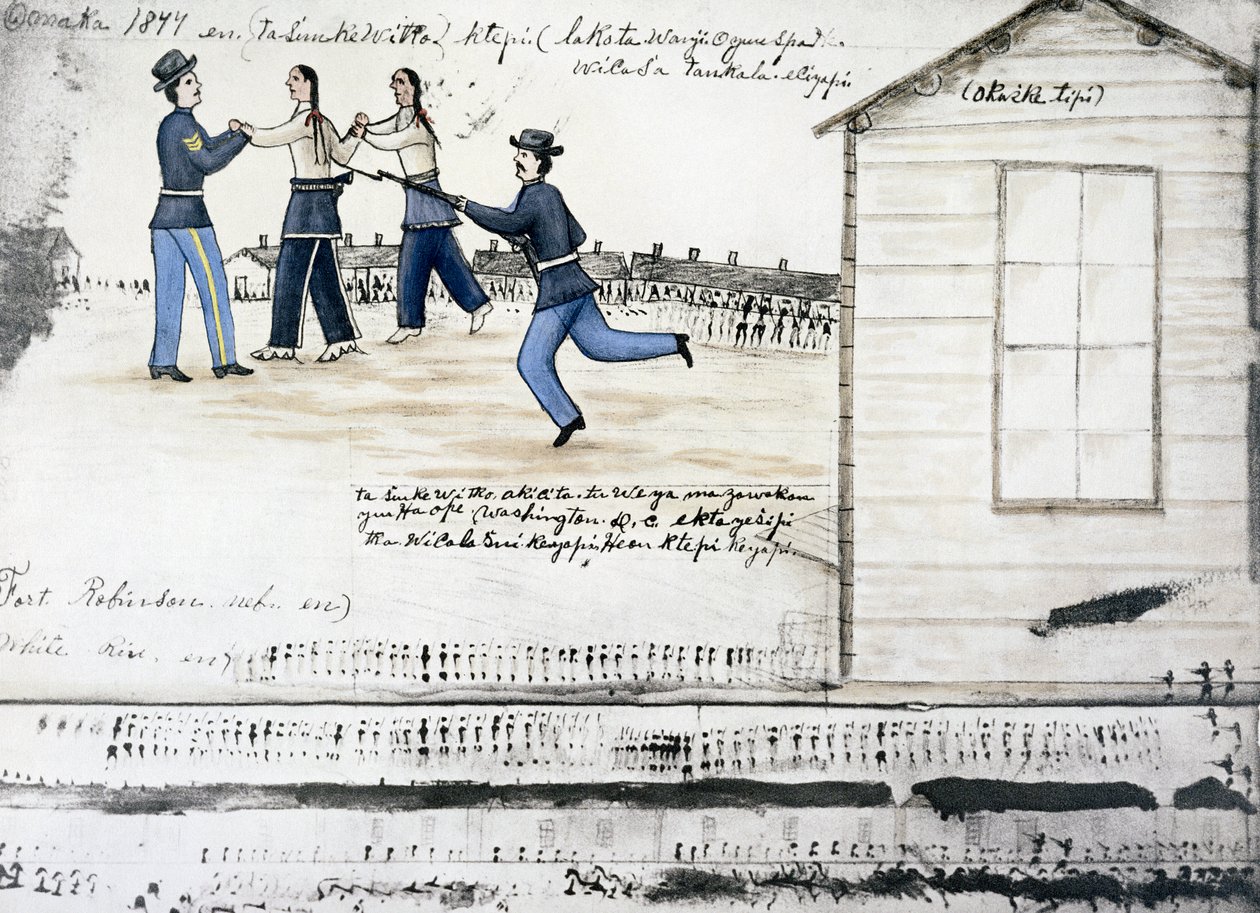 Omaka 1877 en. (ta śunke Witko) ktepi. (lakota. Wanji. Oyuspapi.
Wicaśa tankala. eciyapi
(Okaśke tipi)
ta śunke Witko. akicita. tuweya mazawakan
yuha ope. Washington. D. C. ekta yeśipi
tka. Wicala śni. keyapi. Heon ktepi keyapi.
Fort. Robinson. nebr. en)
White Rive. en)